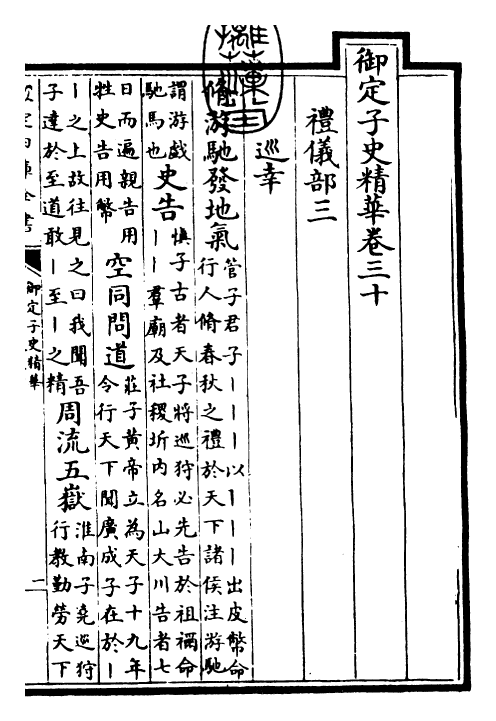 御定子史精華卷三十
禮儀部三
巡幸
脩游馳發地氣
管子君子丨丨丨以丨丨丨出皮幣命
行人脩春秋之禮於天下諸侯注游馳
謂游戲
馳馬也
史告
慎子古者天子將巡狩必先告於祖禰命
丨丨羣廟及社稷圻內名山大川告者七
日而遍親告用
牲史告用幣
空同問道
莊子黄帝立為天子十九年
令行天下聞廣成子在於丨
丨之上故往見之曰我聞吾
子達於至道敢丨至丨之精
周流五嶽
淮南子堯巡狩
行教勤勞天下
欽定四庫全書
御定子史精華
二